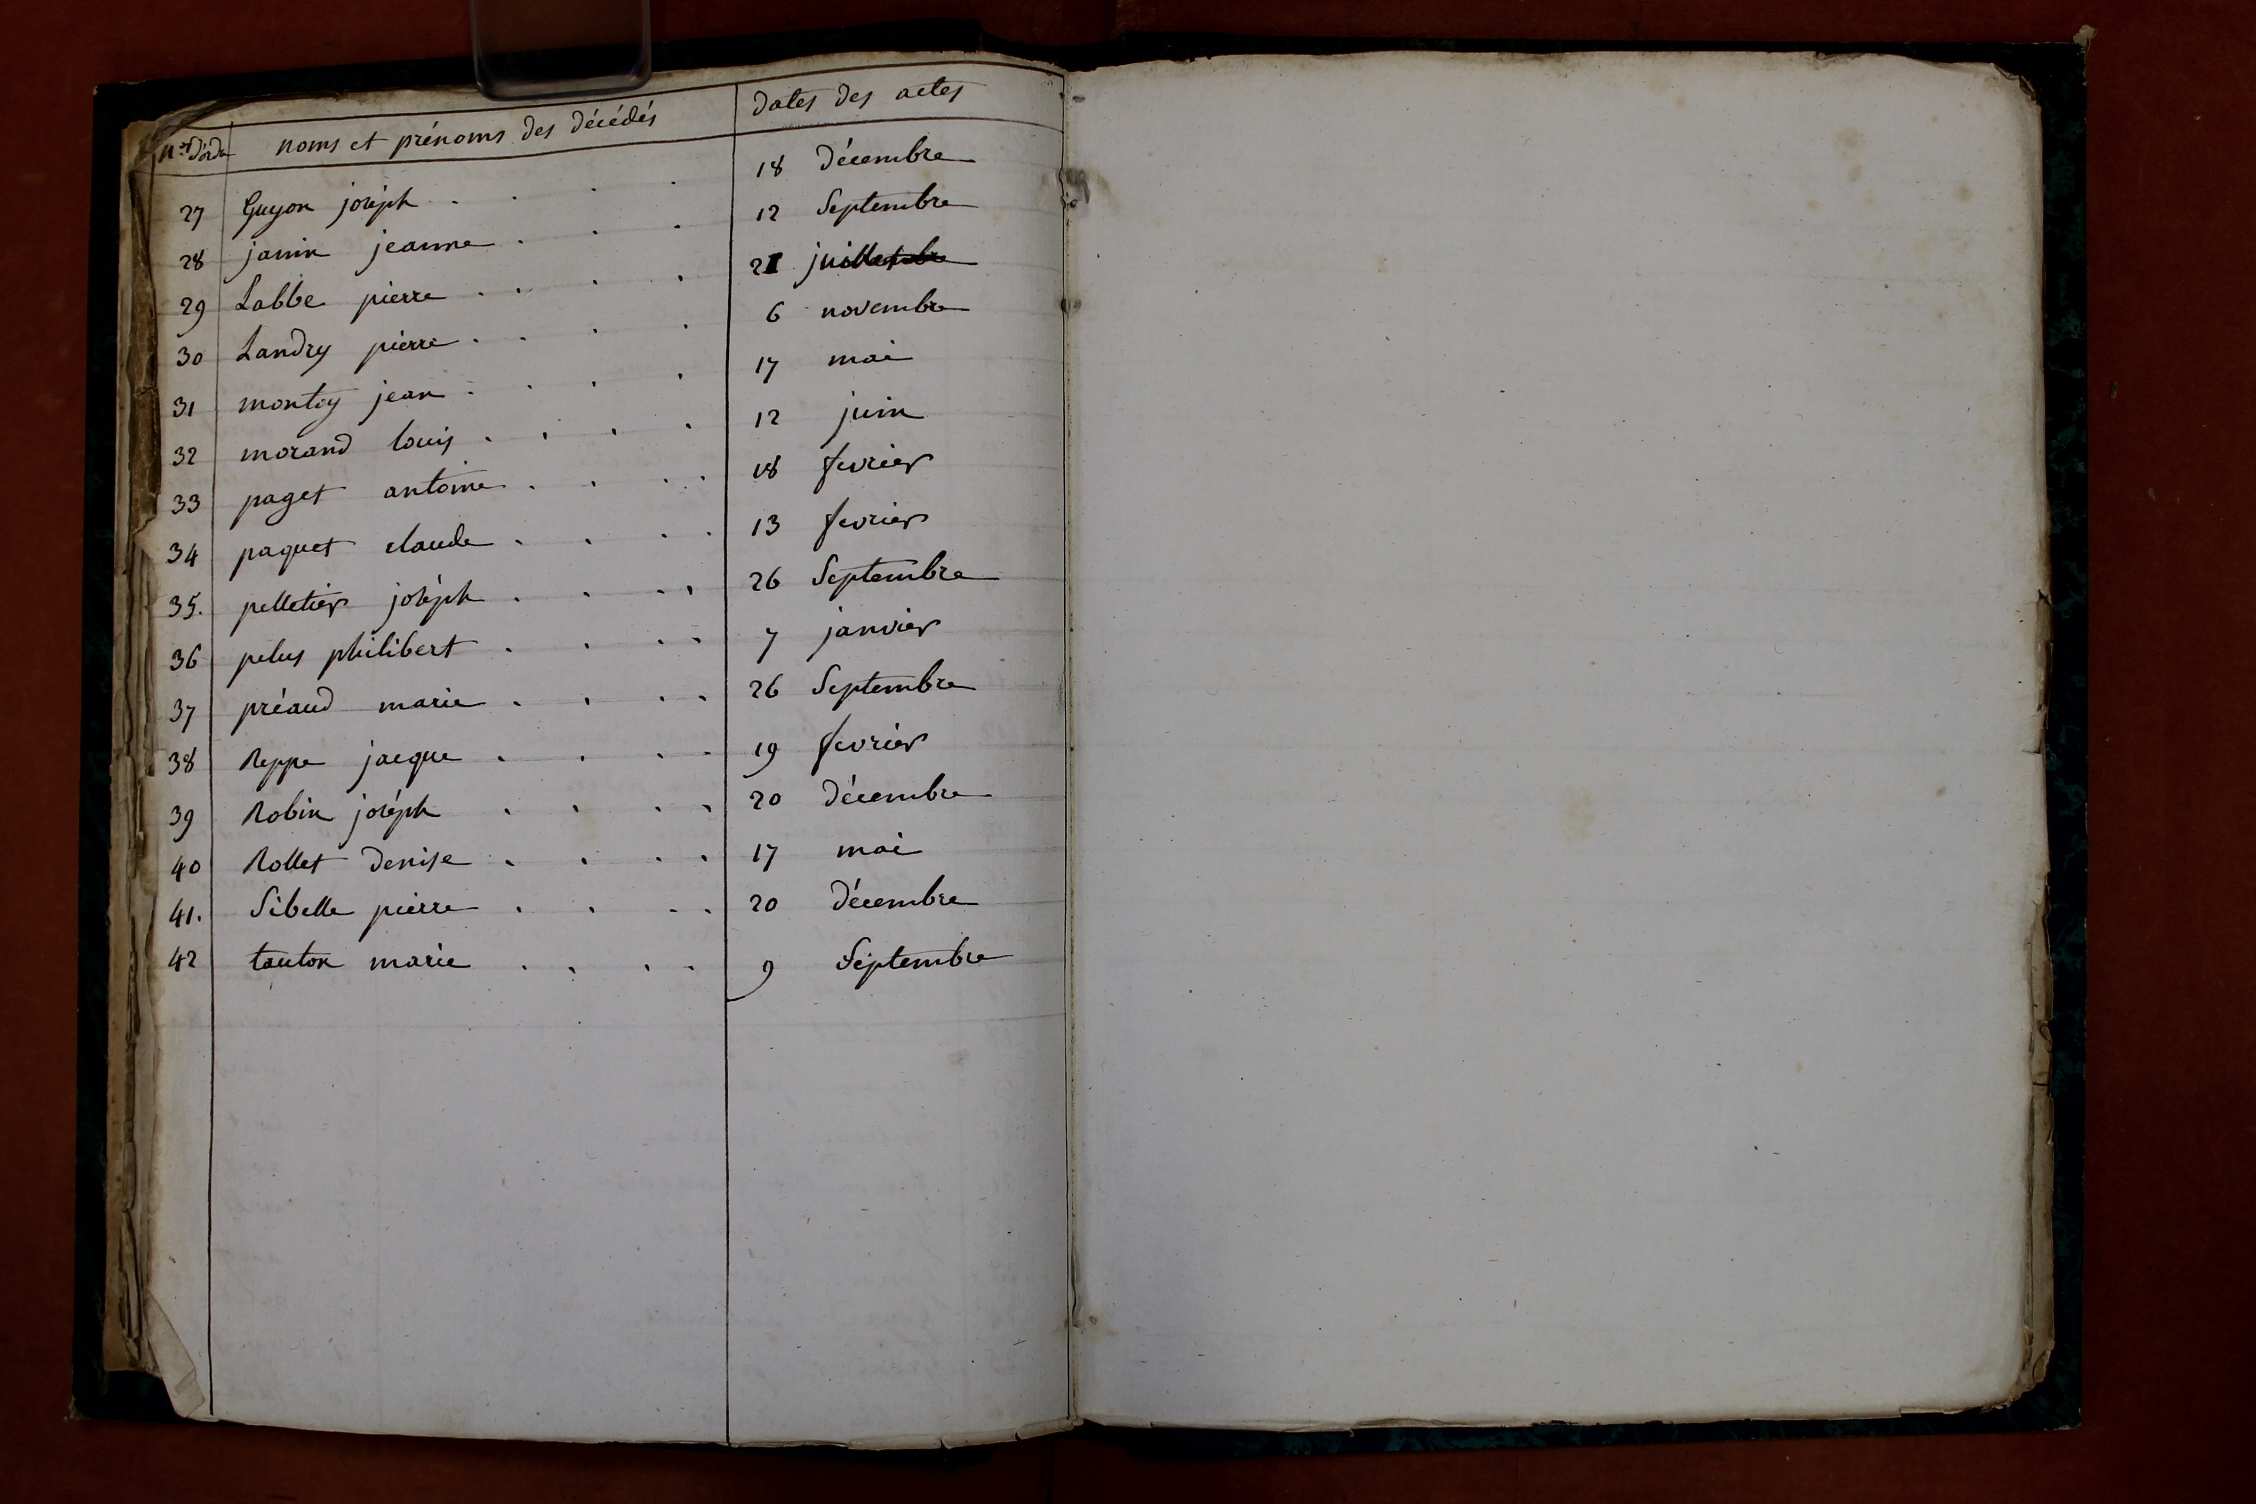 nos d'ordre noms et prénoms des décédés dates des actes
27 Guyon joséph . . . . 18 décembre
28 janin jeanne . . . 12 Septembre
29 Labbe pierre . . . . 21 juillet
30 Landry pierre . . . . 6 novembre
31 montoy jean . . . . 17 mai
32 morand louis . . . . 12 juin
33 paget antoine . . . . 18 fevrier
34 paquet claude . . . . 13 fevrier
35. pelletier joséph . . . . 26 Septembre
36 pelus philibert . . . . 7 janvier
37 préaud marie . . . . 26 Septembre
38 Reppe jacque . . . . 19 fevrier
39 Robin joséph . . . . 20 décembre
40 Rollet denise . . . . 17 mai
41. Sibelle pierre . . . . 20 décembre
42 tauton marie . . . . 9 Septembre